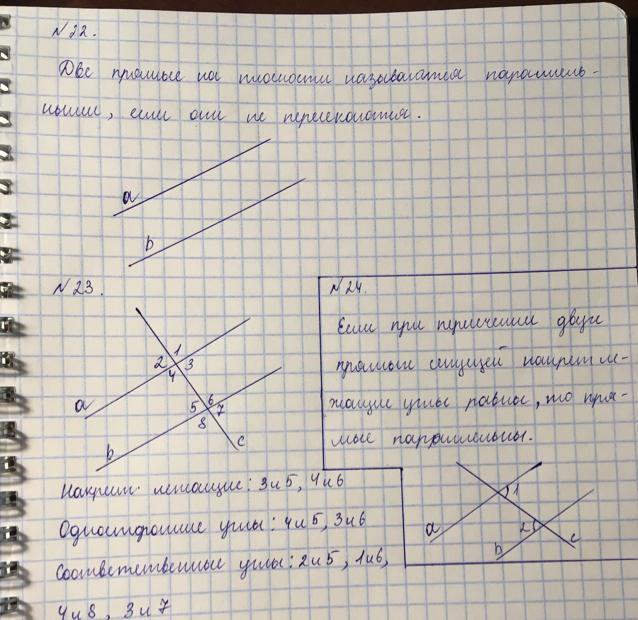 №22.
Две прямые на плоскости называются параллель-
ными, если они не пересекаются.
a
b
№23.
1
2 3
4
a
5 6 7
8
b
c
Накрест лежащие: 3 и 5, 4 и 6
Односторонние углы: 4 и 5, 3 и 6
Соответственные углы: 2 и 5, 1 и 6,
4 и 8, 3 и 7
№24.
Если при пересечении двух
прямых секущей накрест ле-
жащие углы равны, то пря-
мые параллельны.
1
a
2
b
c